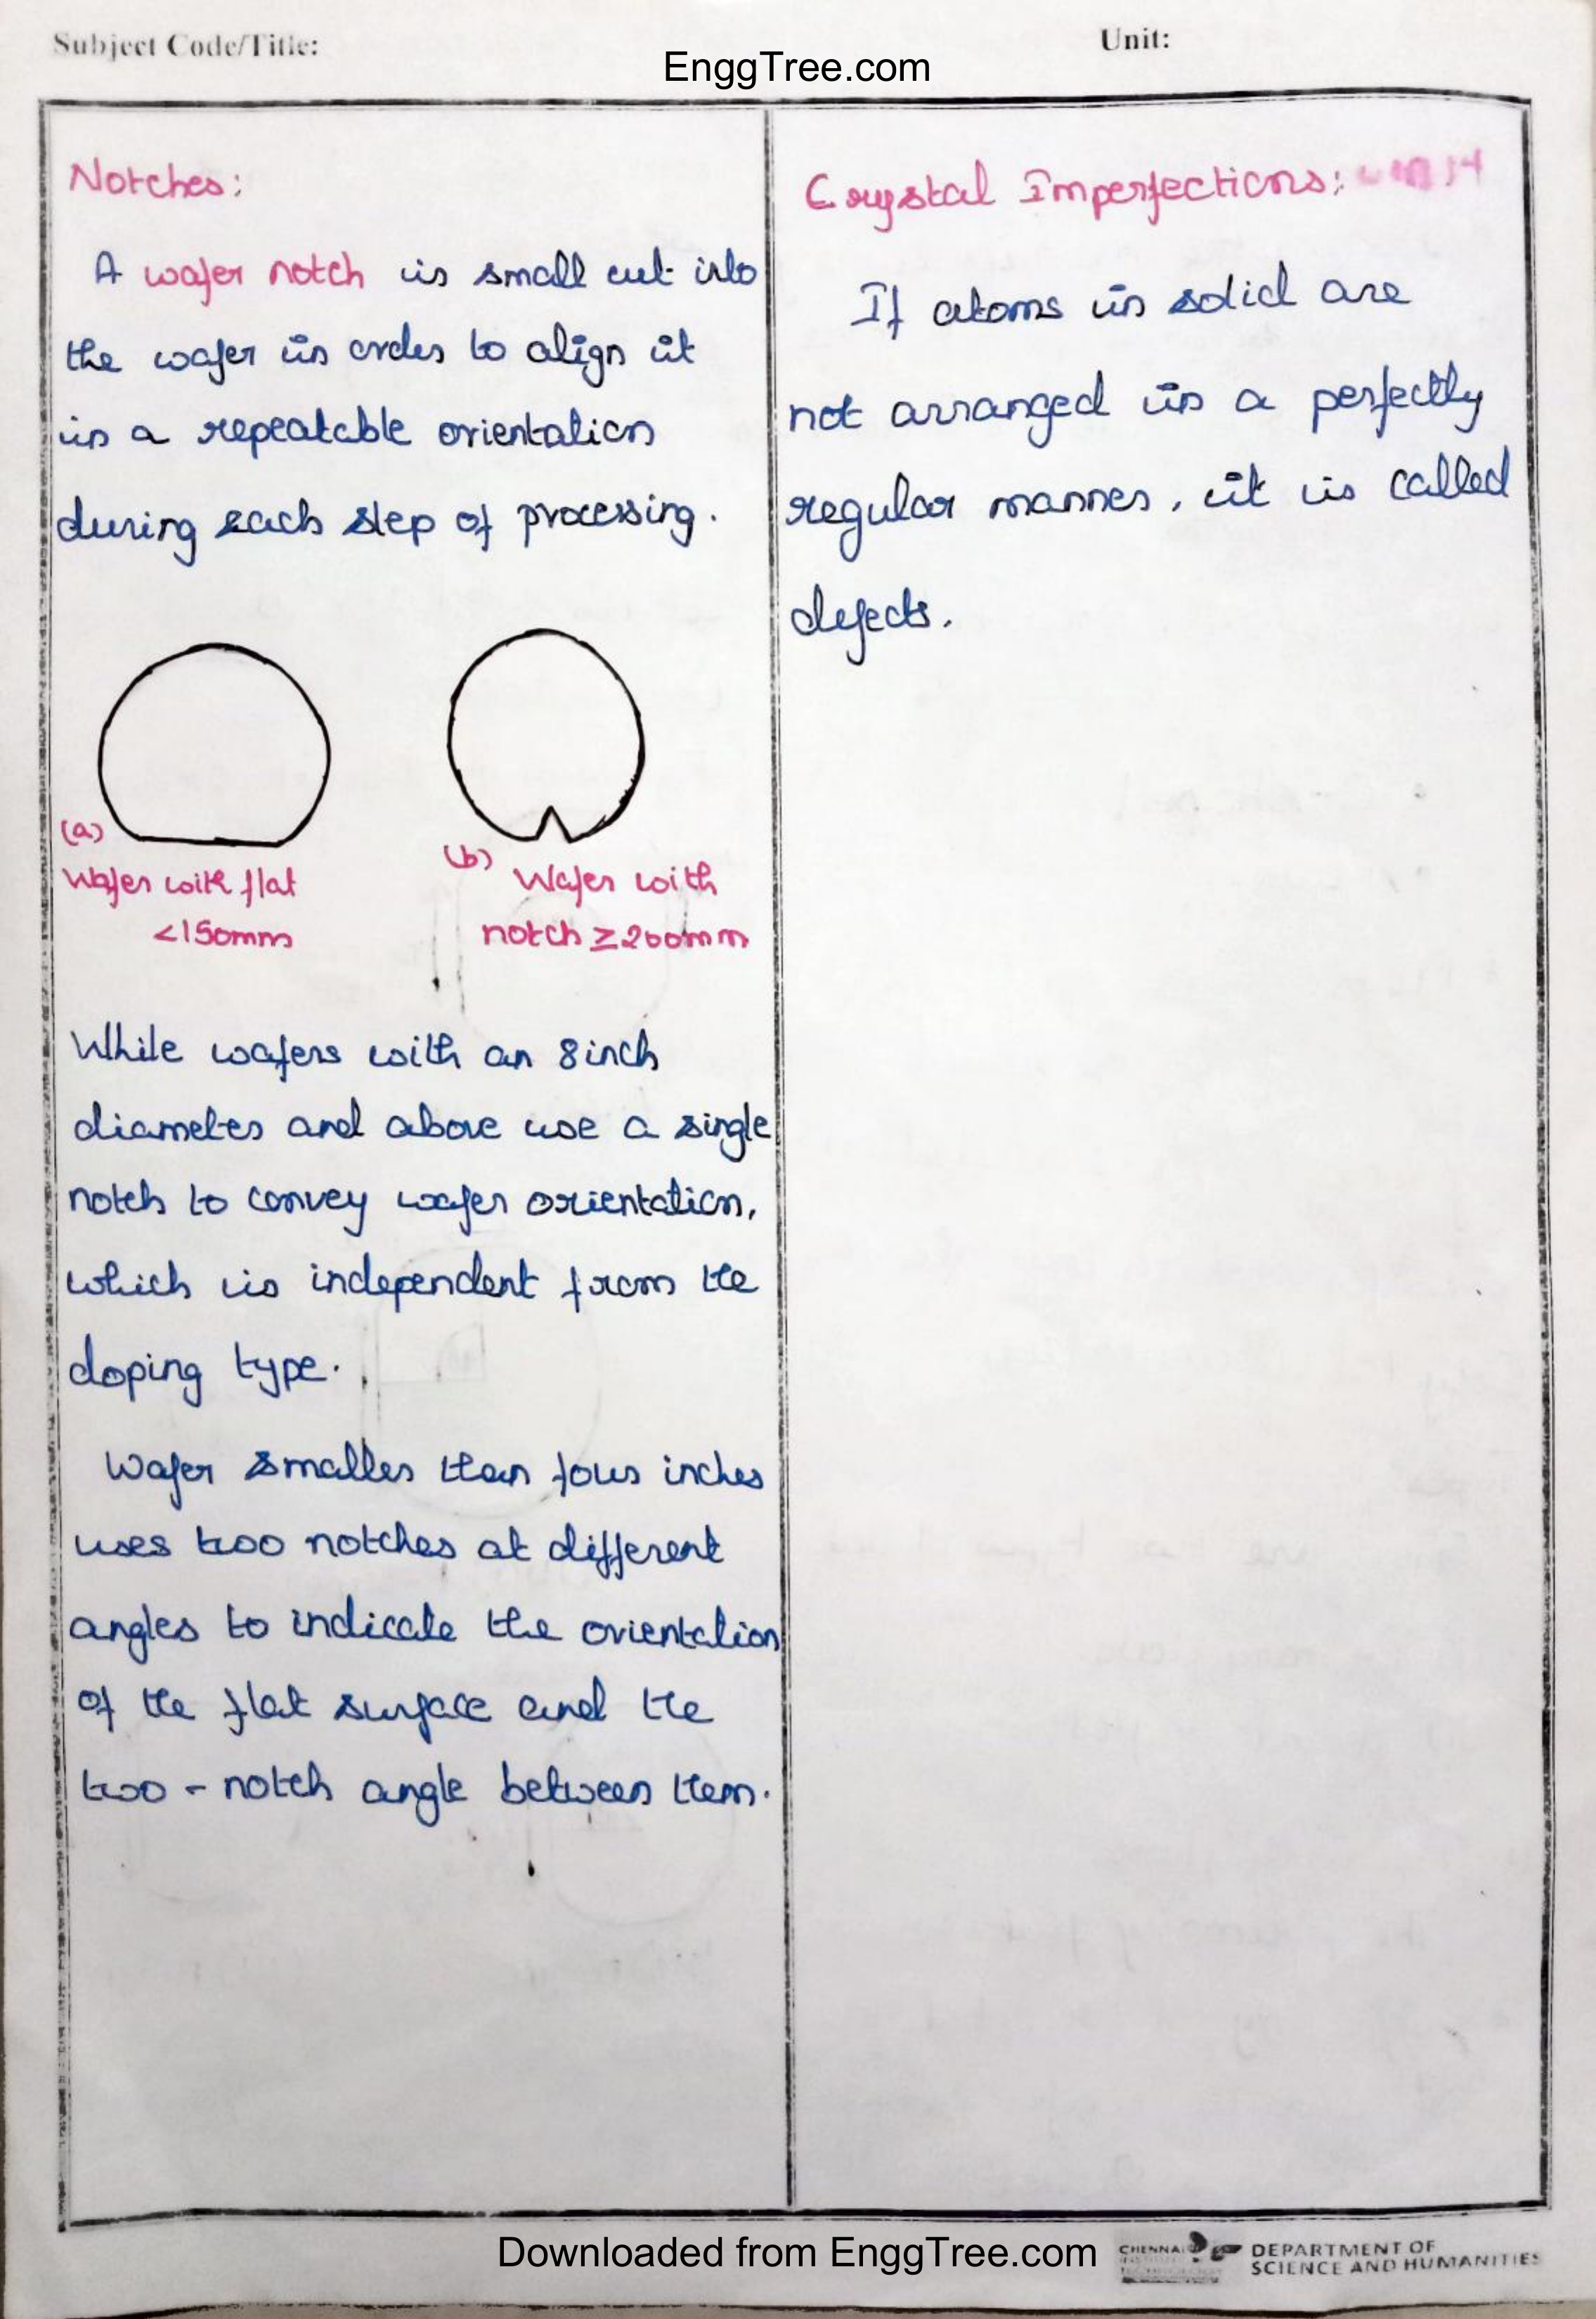 Subject Code/Title:
EnggTree.com
Unit:
Notches:
A wafer notch is small cut into
the wafer in order to align it
in a repeatable orientation
during each step of processing.
(a)
Wafer with flat
<150mm
(b) Wafer with
notch ≥200mm
While wafers with an 8inch
diameter and above use a single
notch to convey wafer orientation,
which is independent from the
doping type.
Wafer smaller than four inches
uses two notches at different
angles to indicate the orientation
of the flat surface and the
two - notch angle between them.
Crystal Imperfections:
If atoms in solid are
not arranged in a perfectly
regular manner, it is called
defects.
Downloaded from EnggTree.com
CHENNAI
DEPARTMENT OF
SCIENCE AND HUMANITIES